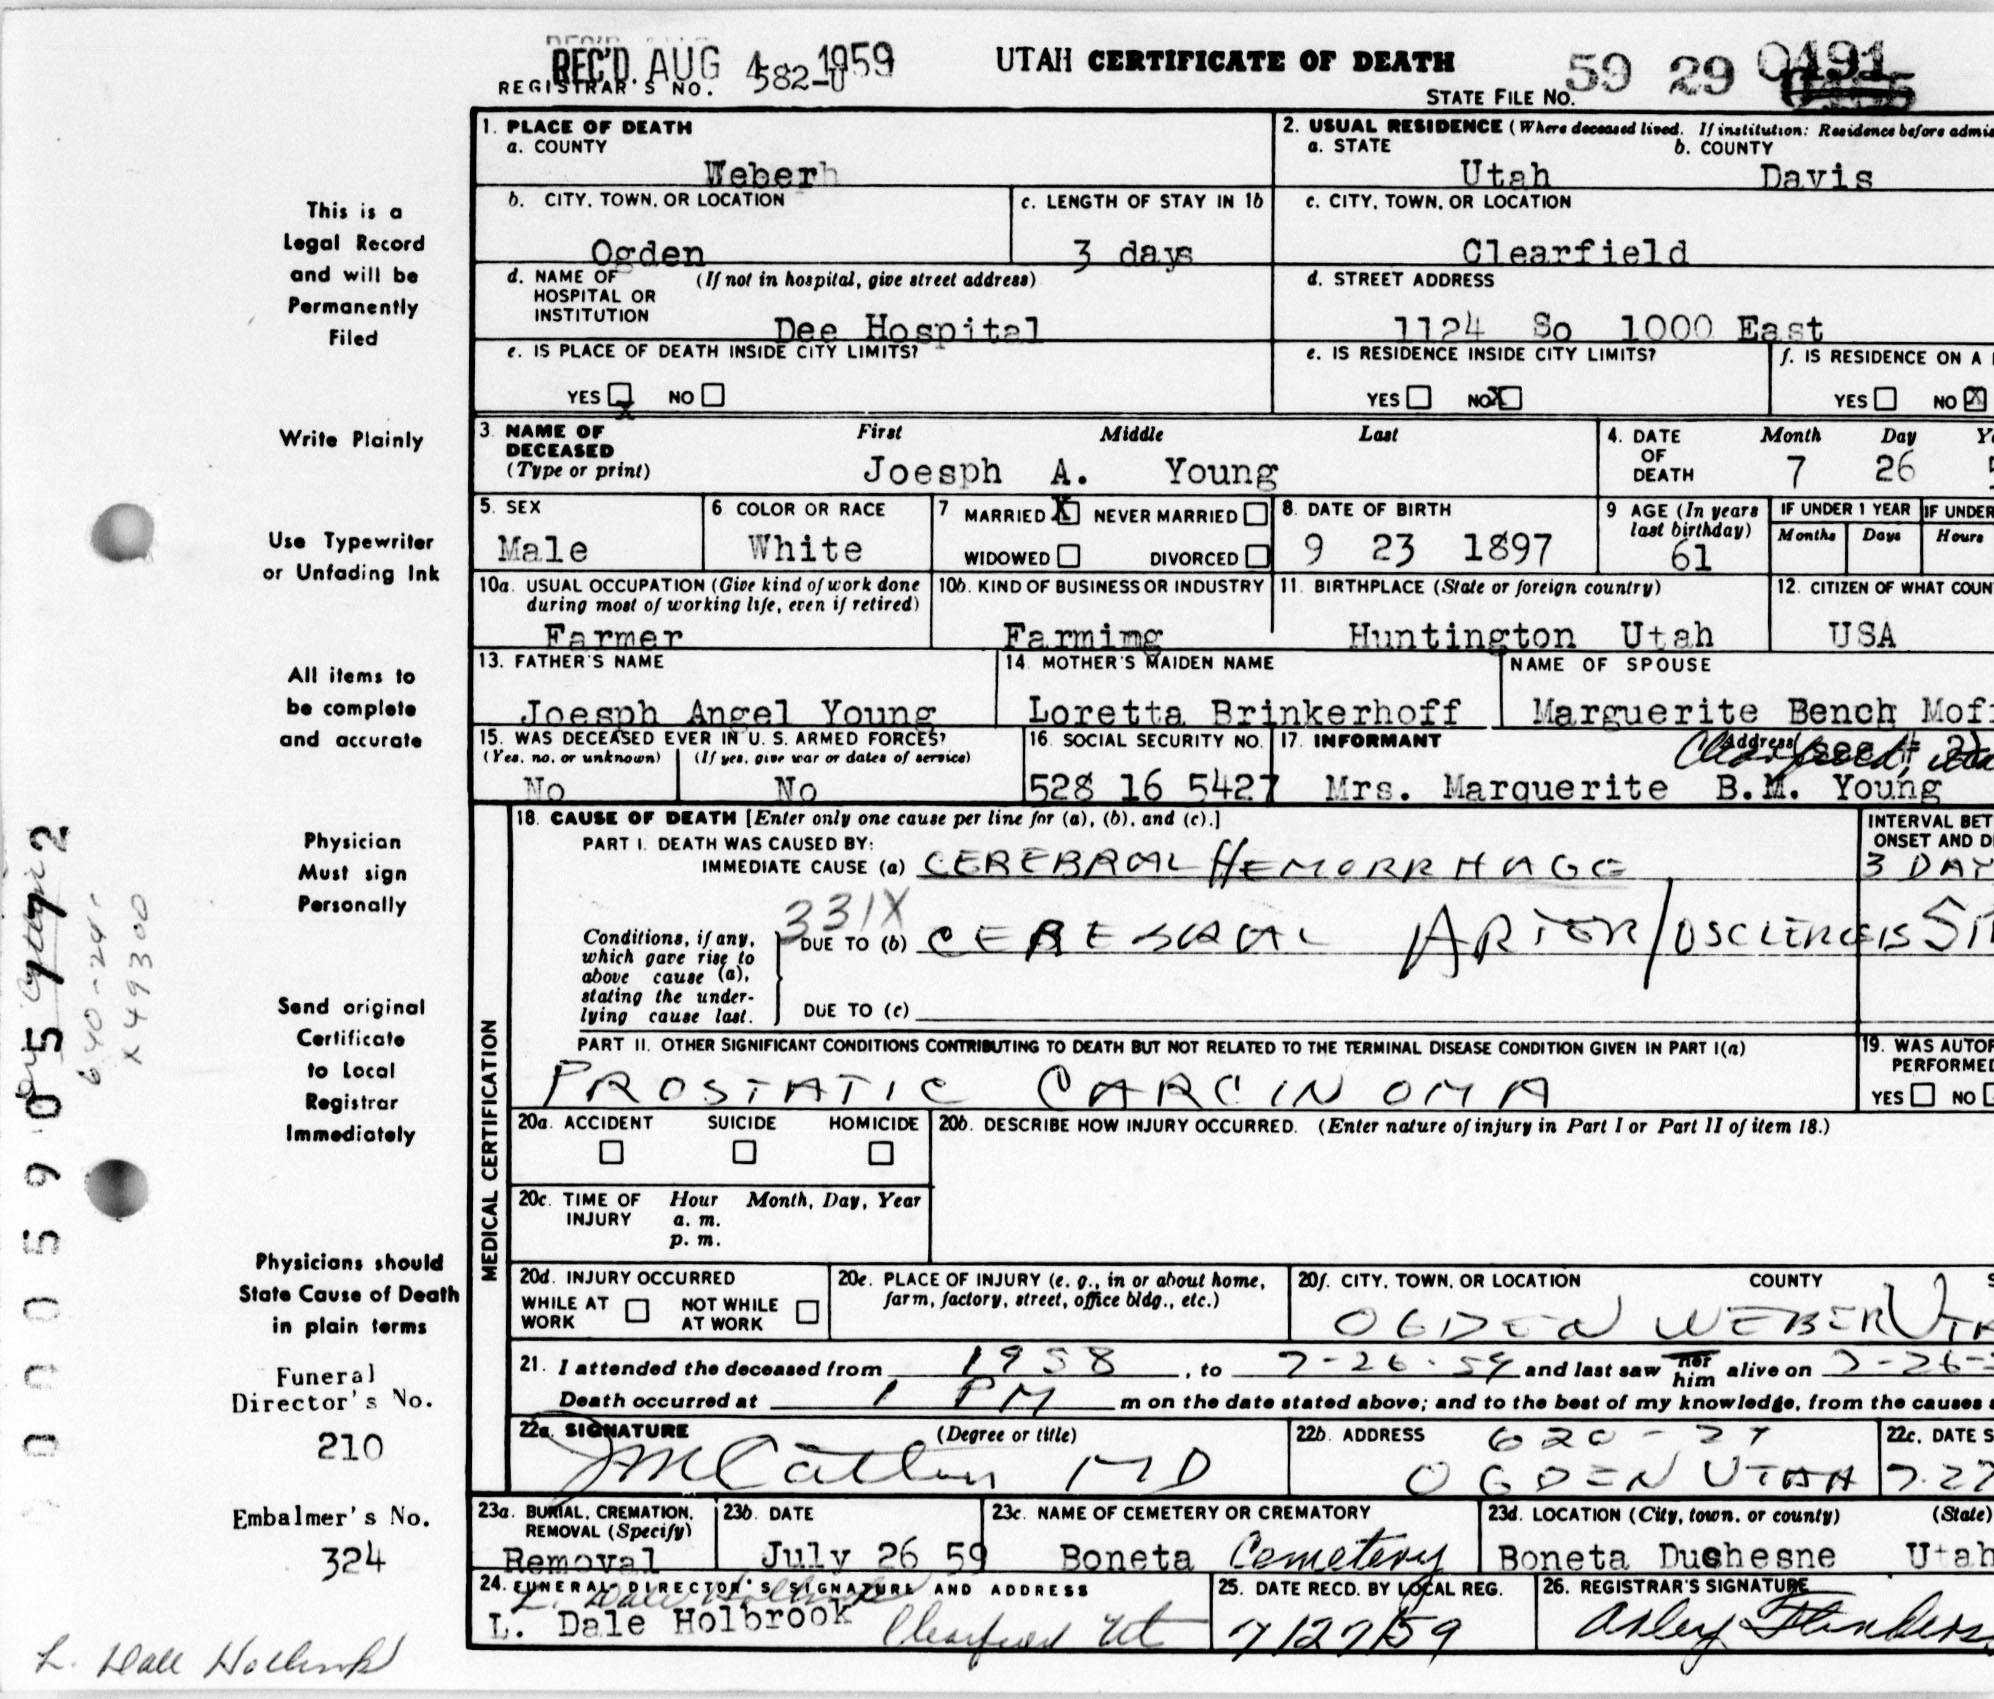 REC'D. AUG 4 1959
UTAH CERTIFICATE OF DEATH
59 29 0491
REGISTRAR'S NO. 582-U
STATE FILE NO.
1. PLACE OF DEATH
a. COUNTY
Weber
2. USUAL RESIDENCE (Where deceased lived. If institution: Residence before admis
a. STATE b. COUNTY
Utah Davis
b. CITY, TOWN, OR LOCATION
Ogden
c. LENGTH OF STAY IN 1b
3 days
c. CITY, TOWN, OR LOCATION
Clearfield
d. NAME OF (If not in hospital, give street address)
HOSPITAL OR
INSTITUTION
Dee Hospital
d. STREET ADDRESS
1124 So 1000 East
e. IS PLACE OF DEATH INSIDE CITY LIMITS?
YES X NO
e. IS RESIDENCE INSIDE CITY LIMITS?
YES NO X
f. IS RESIDENCE ON A
YES NO X
3. NAME OF
DECEASED
(Type or print)
First Middle Last
Joesph A. Young
4. DATE
OF
DEATH
Month Day Y
7 26 5
5. SEX
Male
6. COLOR OR RACE
White
7 MARRIED X NEVER MARRIED
WIDOWED DIVORCED
8. DATE OF BIRTH
9 23 1897
9 AGE (In years
last birthday)
61
IF UNDER 1 YEAR IF UNDER
Months Days Hours
10a. USUAL OCCUPATION (Give kind of work done
during most of working life, even if retired)
Farmer
10b. KIND OF BUSINESS OR INDUSTRY
Farmimg
11. BIRTHPLACE (State or foreign country)
Huntington Utah
12. CITIZEN OF WHAT COUN
USA
13. FATHER'S NAME
Joesph Angel Young
14. MOTHER'S MAIDEN NAME
Loretta Brinkerhoff
NAME OF SPOUSE
Marguerite Bench Mof
15. WAS DECEASED EVER IN U. S. ARMED FORCES?
(Yes, no, or unknown) (If yes, give war or dates of service)
No No
16. SOCIAL SECURITY NO.
528 16 5427
17. INFORMANT Address (see # 2)
Clearfield, Uta
Mrs. Marquerite B.M. Young
18. CAUSE OF DEATH [Enter only one cause per line for (a), (b), and (c).]
PART I. DEATH WAS CAUSED BY:
IMMEDIATE CAUSE (a) CEREBRAL HEMORRHAGE
INTERVAL BET
ONSET AND D
3 DAY
331X
Conditions, if any,
which gave rise to
above cause (a),
stating the under-
lying cause last.
DUE TO (b) CEREBRAL ARTERIOSCLEROSIS
DUE TO (c)
PART II. OTHER SIGNIFICANT CONDITIONS CONTRIBUTING TO DEATH BUT NOT RELATED TO THE TERMINAL DISEASE CONDITION GIVEN IN PART I(a)
PROSTATIC CARCINOMA
19. WAS AUTOP
PERFORMED
YES NO
MEDICAL CERTIFICATION
20a. ACCIDENT SUICIDE HOMICIDE
20b. DESCRIBE HOW INJURY OCCURRED. (Enter nature of injury in Part I or Part II of item 18.)
20c. TIME OF Hour Month, Day, Year
INJURY a. m.
p. m.
20d. INJURY OCCURRED
WHILE AT NOT WHILE
WORK AT WORK
20e. PLACE OF INJURY (e. g., in or about home,
farm, factory, street, office bldg., etc.)
20f. CITY, TOWN, OR LOCATION COUNTY S
OGDEN WEBER UTA
21. I attended the deceased from 1958, to 7-26-59 and last saw her him alive on 7-26-
Death occurred at 1 PM m on the date stated above; and to the best of my knowledge, from the causes
22a. SIGNATURE (Degree or title)
MD
22b. ADDRESS 620-27
OGDEN UTAH
22c. DATE S
7-27
23a. BURIAL, CREMATION,
REMOVAL (Specify)
Removal
23b. DATE
July 26 59
23c. NAME OF CEMETERY OR CREMATORY
Boneta Cemetery
23d. LOCATION (City, town, or county) (State)
Boneta Duchesne Utah
24. FUNERAL DIRECTOR'S SIGNATURE AND ADDRESS
L. Dale Holbrook
L. Dale Holbrook Clearfield Ut
25. DATE RECD. BY LOCAL REG.
7/27/59
26. REGISTRAR'S SIGNATURE
This is a
Legal Record
and will be
Permanently
Filed
Write Plainly
Use Typewriter
or Unfading Ink
All items to
be complete
and accurate
Physician
Must sign
Personally
Send original
Certificate
to Local
Registrar
Immediately
Physicians should
State Cause of Death
in plain terms
Funeral
Director's No.
210
Embalmer's No.
324
L. Dale Holbrook
000059052
640-24-
X49300